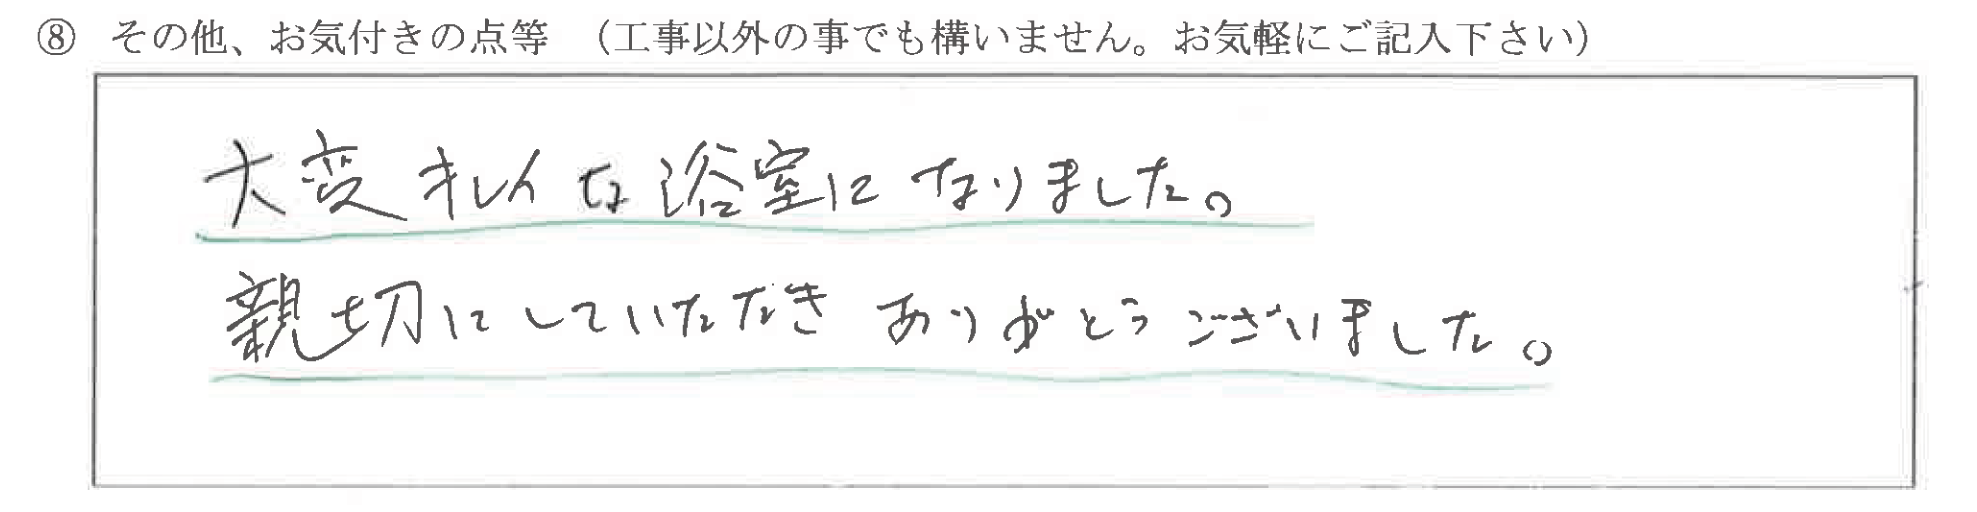 ⑧ その他、お気付きの点等 （工事以外の事でも構いません。お気軽にご記入下さい）
大変キレイな浴室になりました。
親切にしていただき ありがとうございました。